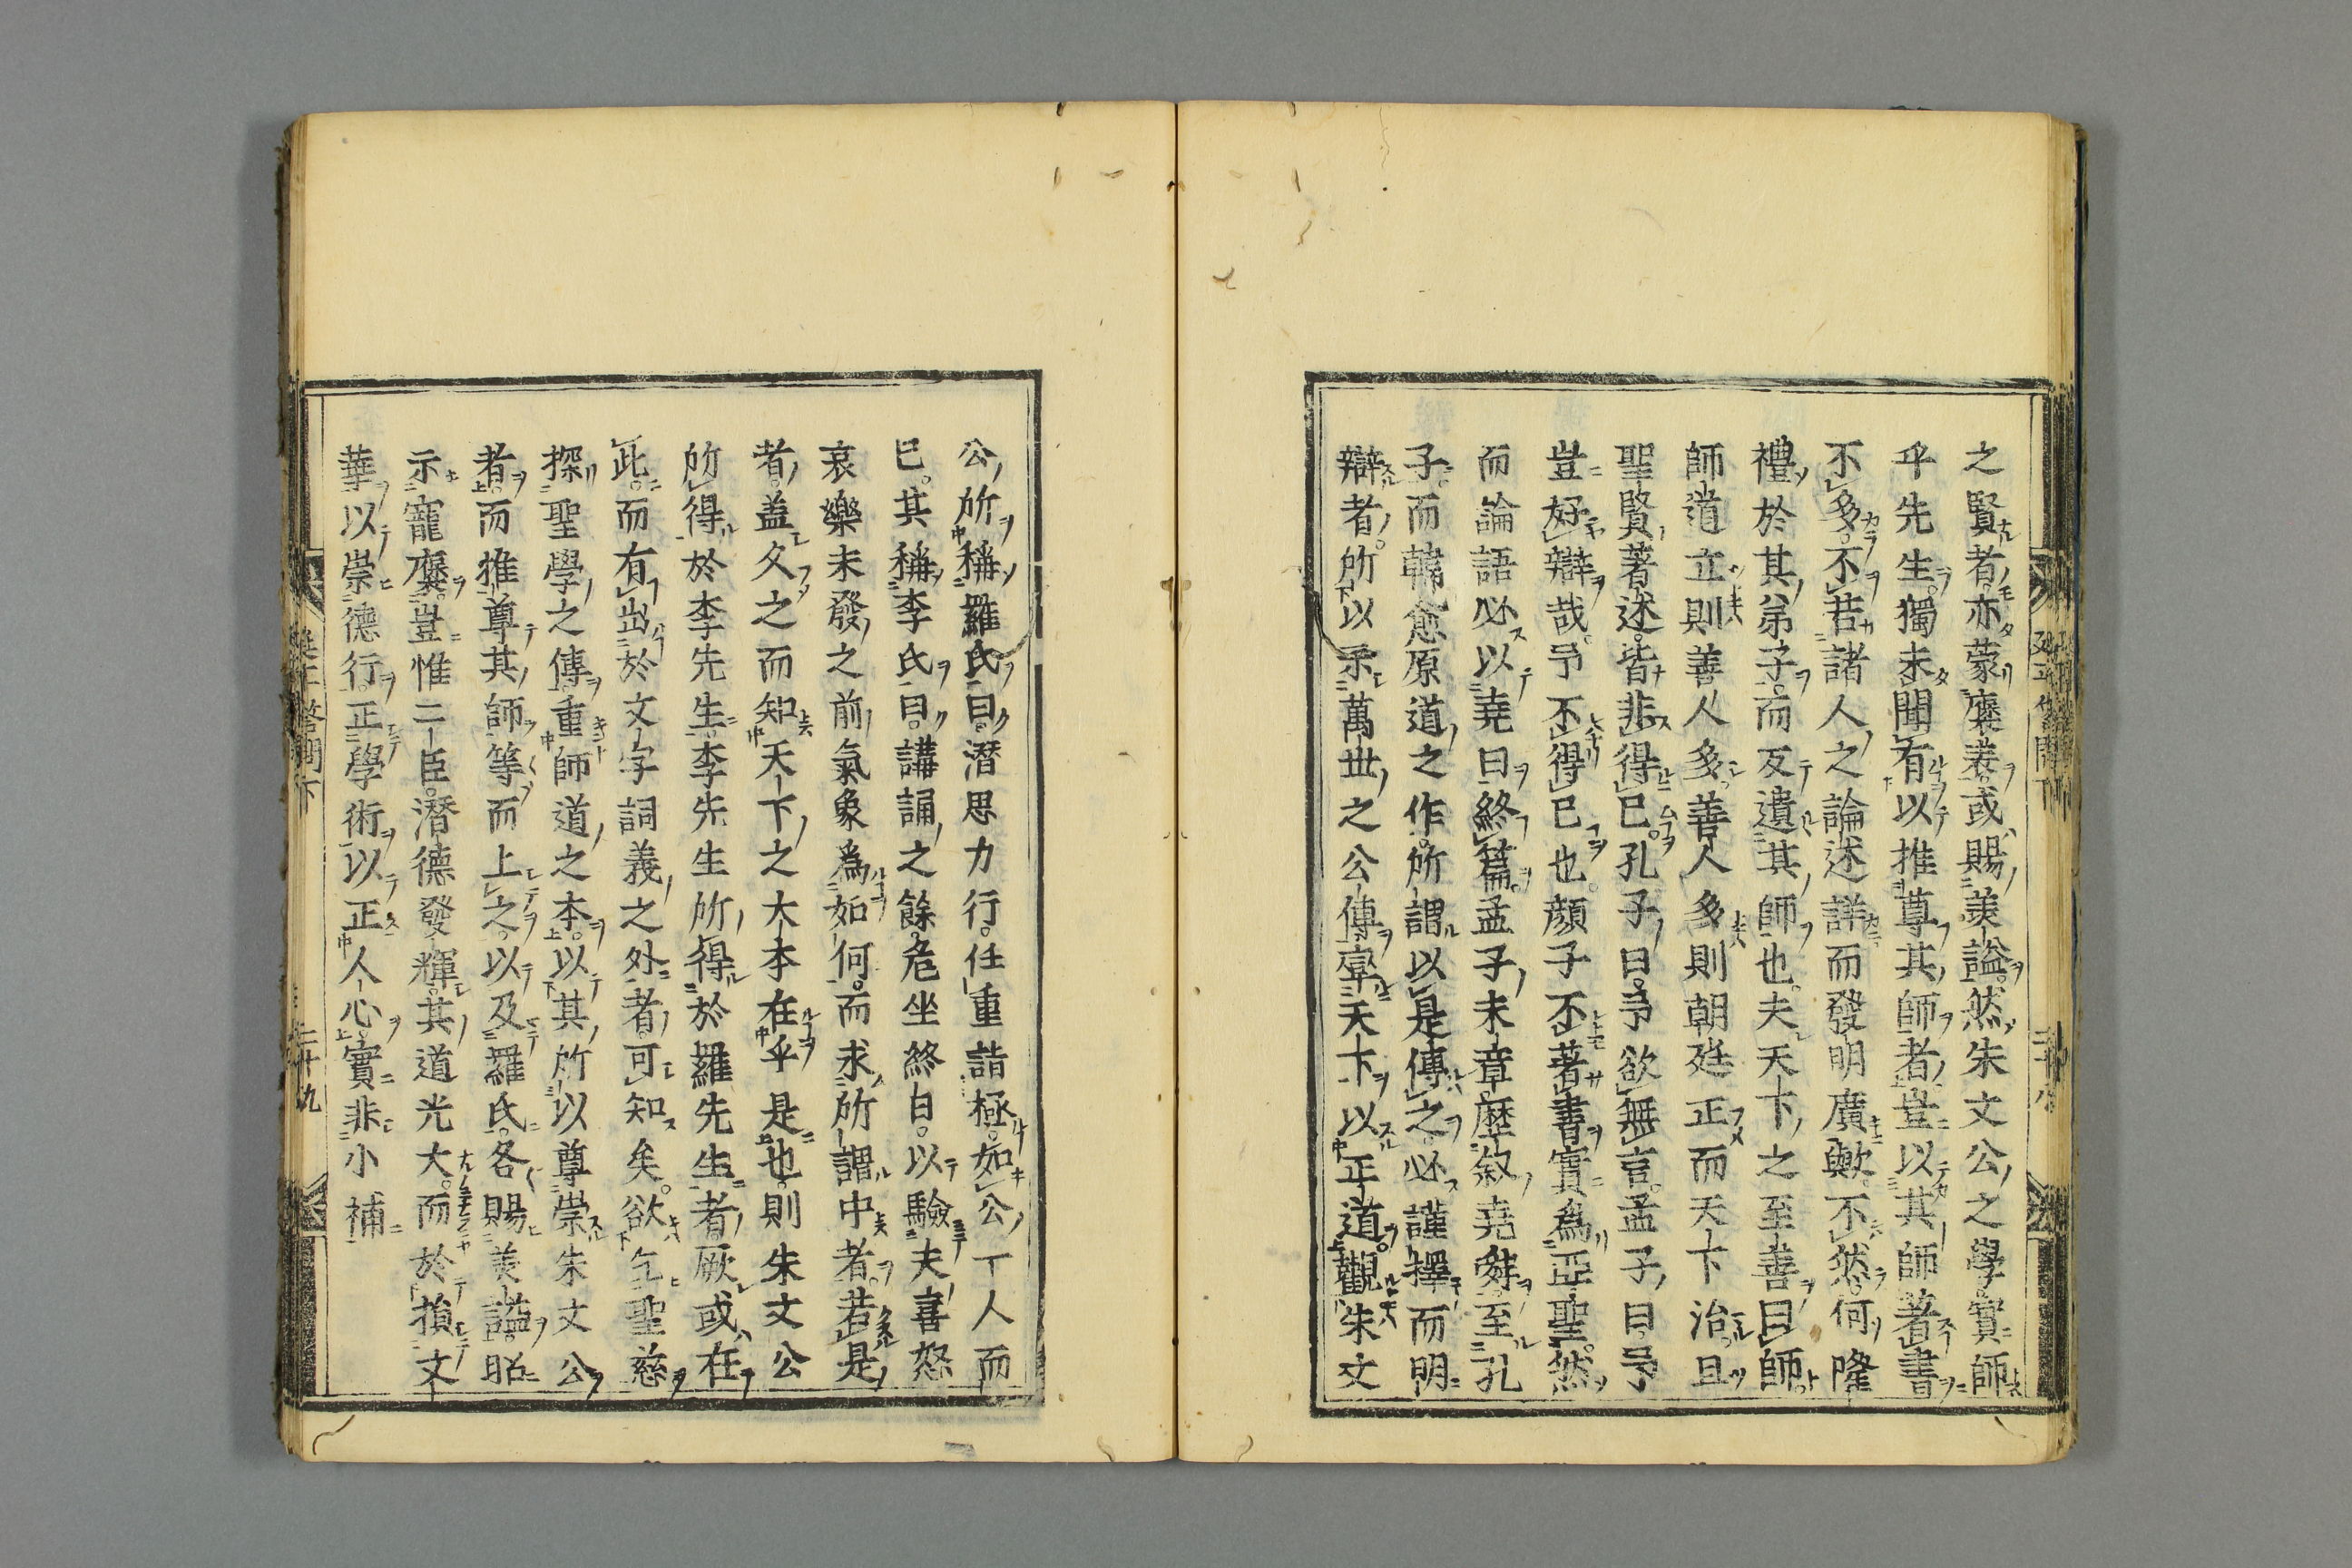 之賢者亦蒙襃表或賜美謚然朱文公之學實師
乎先生獨未聞有以推尊其師者豈以其師著書
不多不若諸人之論述詳而發明廣歟不然何隆
禮於其弟子而反遺其師也夫天下之至善曰師
師道立則善人多善人多則朝廷正而天下治且
聖賢著述皆非得已孔子曰予欲無言孟子曰予
豈好辯哉予不得已也顔子不著書實爲亞聖然
而論語必以堯曰終篇孟子末章歴敘堯舜至孔
子而韓愈原道之作所謂以是傳之必謹擇而明
辯者所以示萬世之公傳率天下以正道觀朱文
公所稱羅氏曰潛思力行任重詣極如公一人而
已其稱李氏曰講誦之餘危坐終日以驗夫喜怒
哀樂未發之前氣象爲如何而求所謂中者若是
者蓋久之而知天下之大本在乎是也則朱文公
所得於李先生李先生所得於羅先生者厥或在
此而有出於文字詞義之外者可知矣欲乞聖慈
探聖學之傳重師道之本以其所以尊崇朱文公
者而推尊其師等而上之以及羅氏各賜美謚昭
示寵襃豈惟二臣潛德發輝其道光大而於損文
華以崇德行正學術以正人心實非小補
二十九